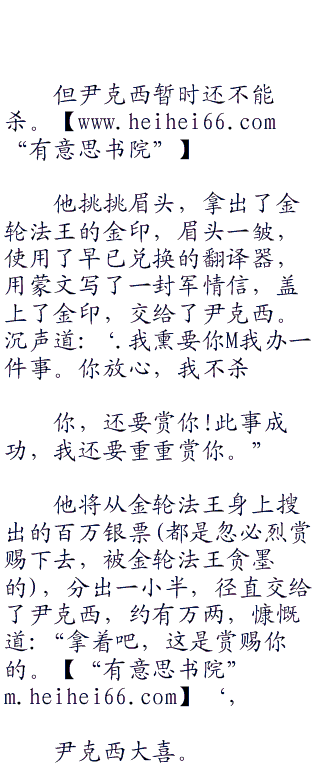 但尹克西暂时还不能
杀。【www.heihei66.com
“有意思书院”】
他挑挑眉头，拿出了金
轮法王的金印，眉头一皱，
使用了早已兑换的翻译器，
用蒙文写了一封军情信，盖
上了金印，交给了尹克西。
沉声道：‘.我熏要你M我办一
件事。你放心，我不杀
你，还要赏你!此事成
功，我还要重重赏你。”
他将从金轮法王身上搜
出的百万银票(都是忽必烈赏
赐下去，被金轮法王贪墨
的)，分出一小半，径直交给
了尹克西，约有万两，慷慨
道：“拿着吧，这是赏赐你
的。【“有意思书院”
m.heihei66.com】‘,
尹克西大喜。